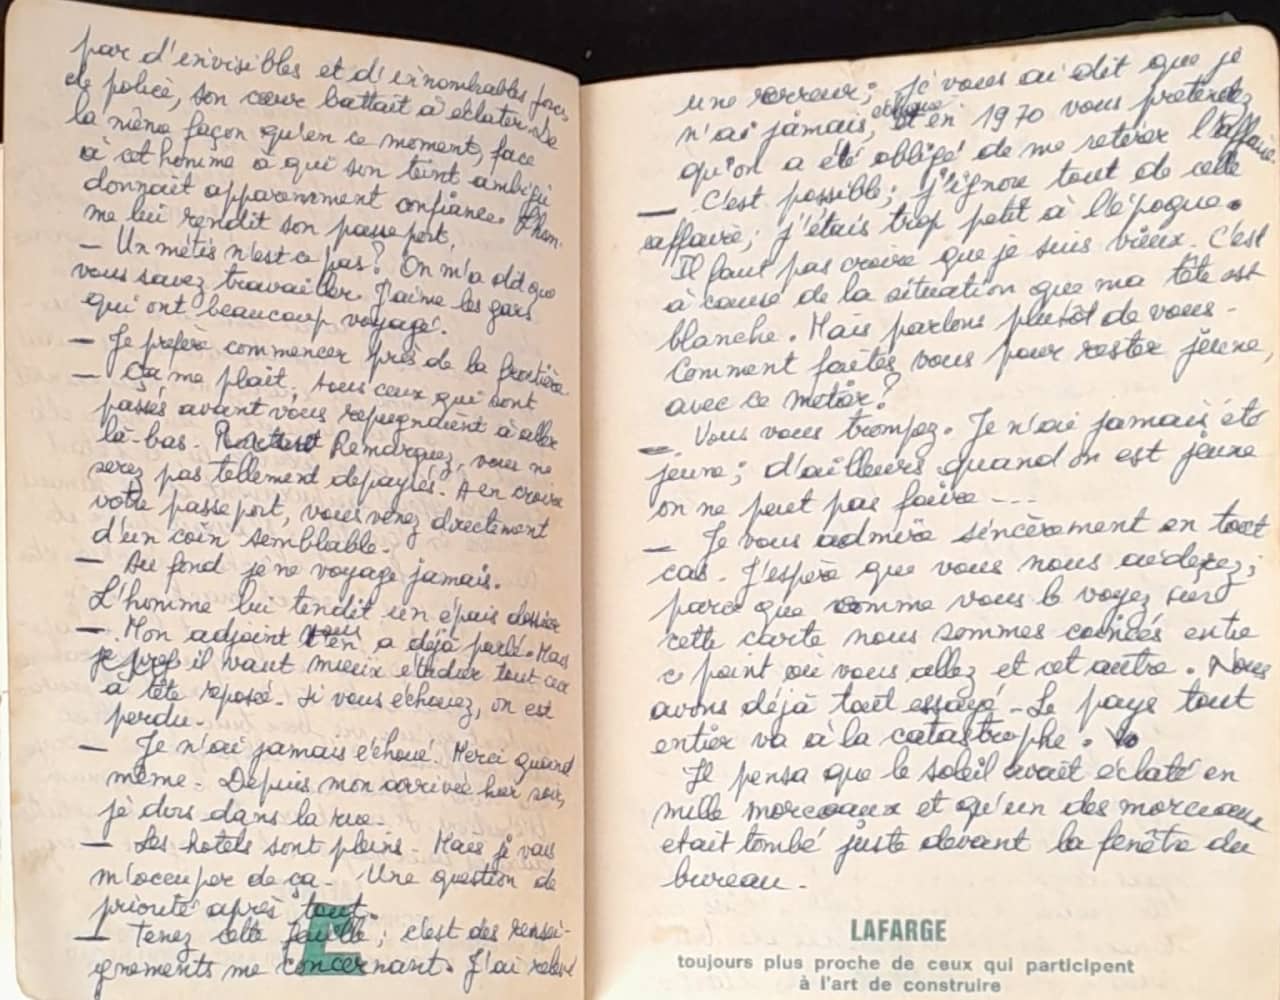 par d'invisibles et d'innombrables forces
de police, son cœur battait à éclater. De
la même façon qu'en ce moment, face
à cet homme à qui son teint ambigu
donnait apparemment confiance. L'hom-
me lui rendit son passeport.
— Un métis n'est-ce pas? On m'a dit que
vous savez travailler. J'aime les gars
qui ont beaucoup voyagé.
— Je préfère commencer près de la frontière.
— Ça me plaît. Tous ceux qui sont
passés avant vous repugnaient à aller
là-bas. Remarquez, vous ne
serez pas tellement dépaysés. A en croire
votre passeport, vous venez directement
d'un coin semblable.
— Au fond je ne voyage jamais.
L'homme lui tendit un épais dossier
— Mon adjoint vous en a déjà parlé. Mais
je pref il vaut mieux étudier tout ceci
à tête reposé. Si vous échouez, on est
perdu.
— Je n'ai jamais échoué. Merci quand
même. Depuis mon arrivée hier soir,
je dors dans la rue.
— Les hotels sont pleins. Mais je vais
m'occuper de ça. Une question de
priorité après tout.
— Tenez cette feuille; c'est des rensei-
gnements me concernant. J'ai relevé
une erreur; je vous ai dit que je
n'ai jamais échoué et en 1970 vous prétendez
qu'on a été obligé de me retirer l'affaire.
— C'est possible; j'ignore tout de cette
affaire; j'étais trop petit à l'époque.
Il faut pas croire que je suis vieux. C'est
à cause de la situation que ma tête est
blanche. Mais parlons plutôt de vous -
Comment faites vous pour rester jeune,
avec ce métier?
— Vous vous trompez. Je n'ai jamais été
jeune; d'ailleurs quand on est jeune
on ne peut pas faire ---
— Je vous admire sincèrement en tout
cas. J'espère que vous nous aiderez;
parce que comme vous le voyez sur
cette carte nous sommes coincés entre
ce point où vous allez et cet autre. Nous
avons déjà tout essayé - Le pays tout
entier va à la catastrophe.
Il pensa que le soleil avait éclaté en
mille morceaux et qu'un des morceaux
etait tombé juste devant la fenêtre du
bureau.
LAFARGE
toujours plus proche de ceux qui participent
à l'art de construire